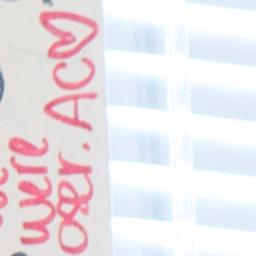 were
over. AC♡